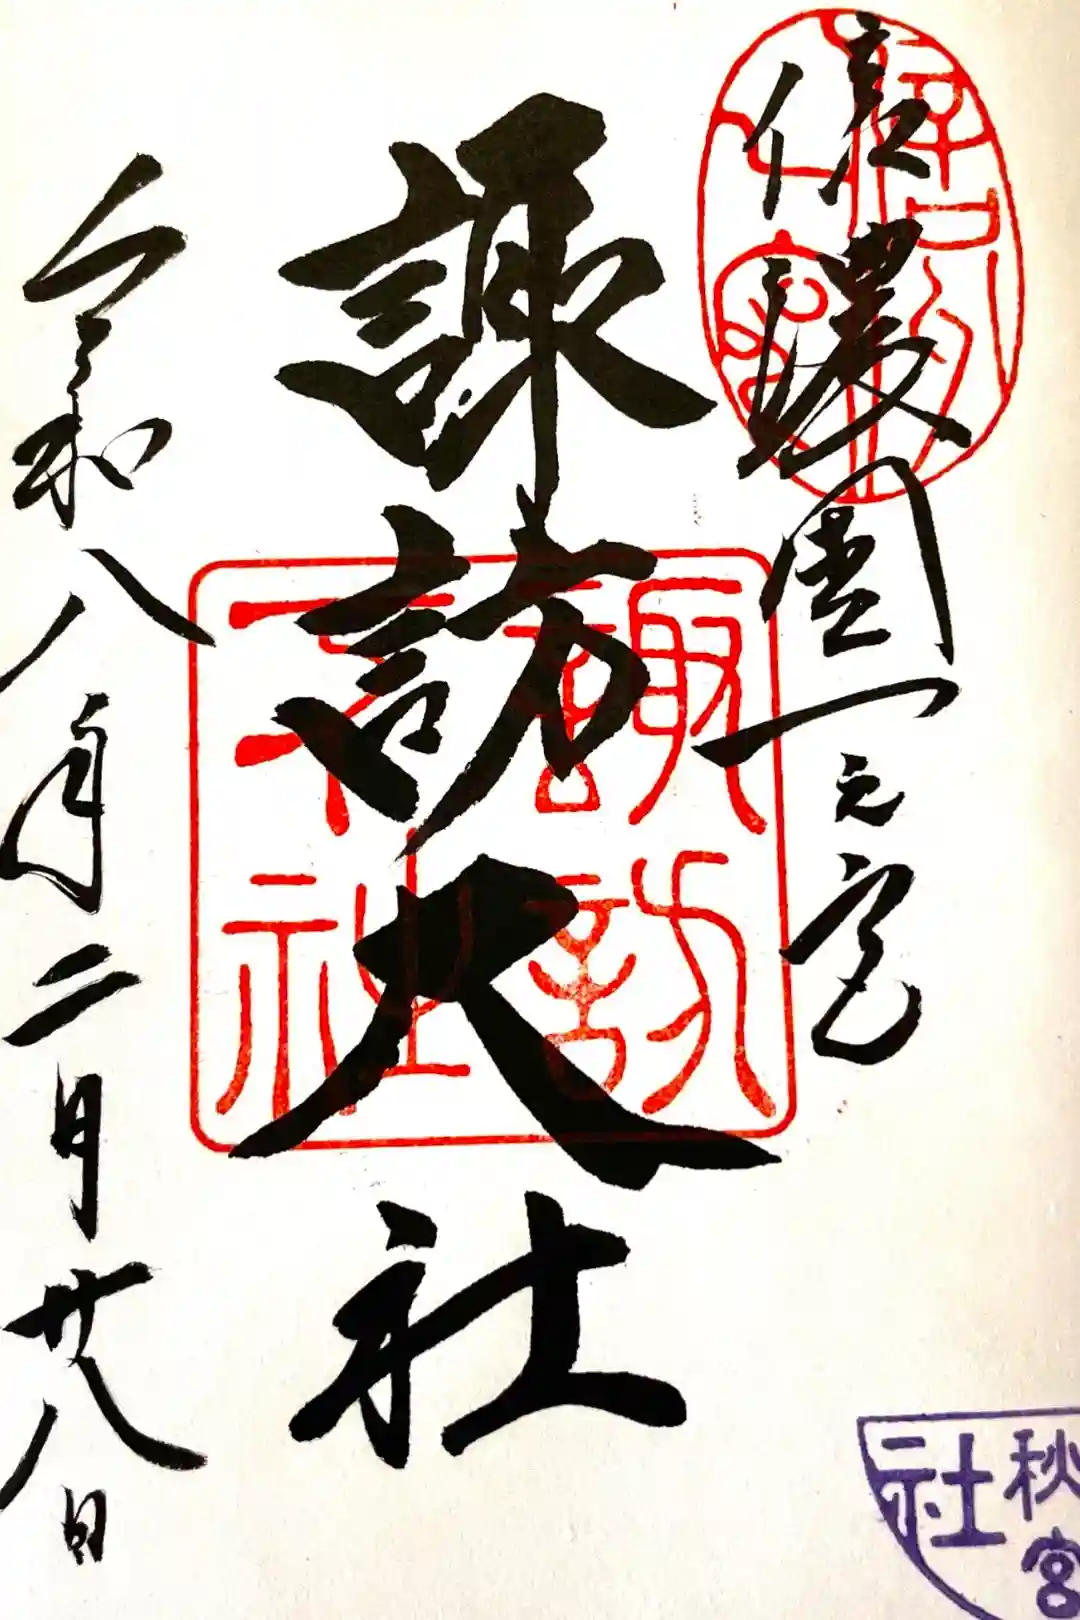 信濃國一之宮
諏訪大社
諏訪
大社
令和八年二月廿八日
秋宮
社